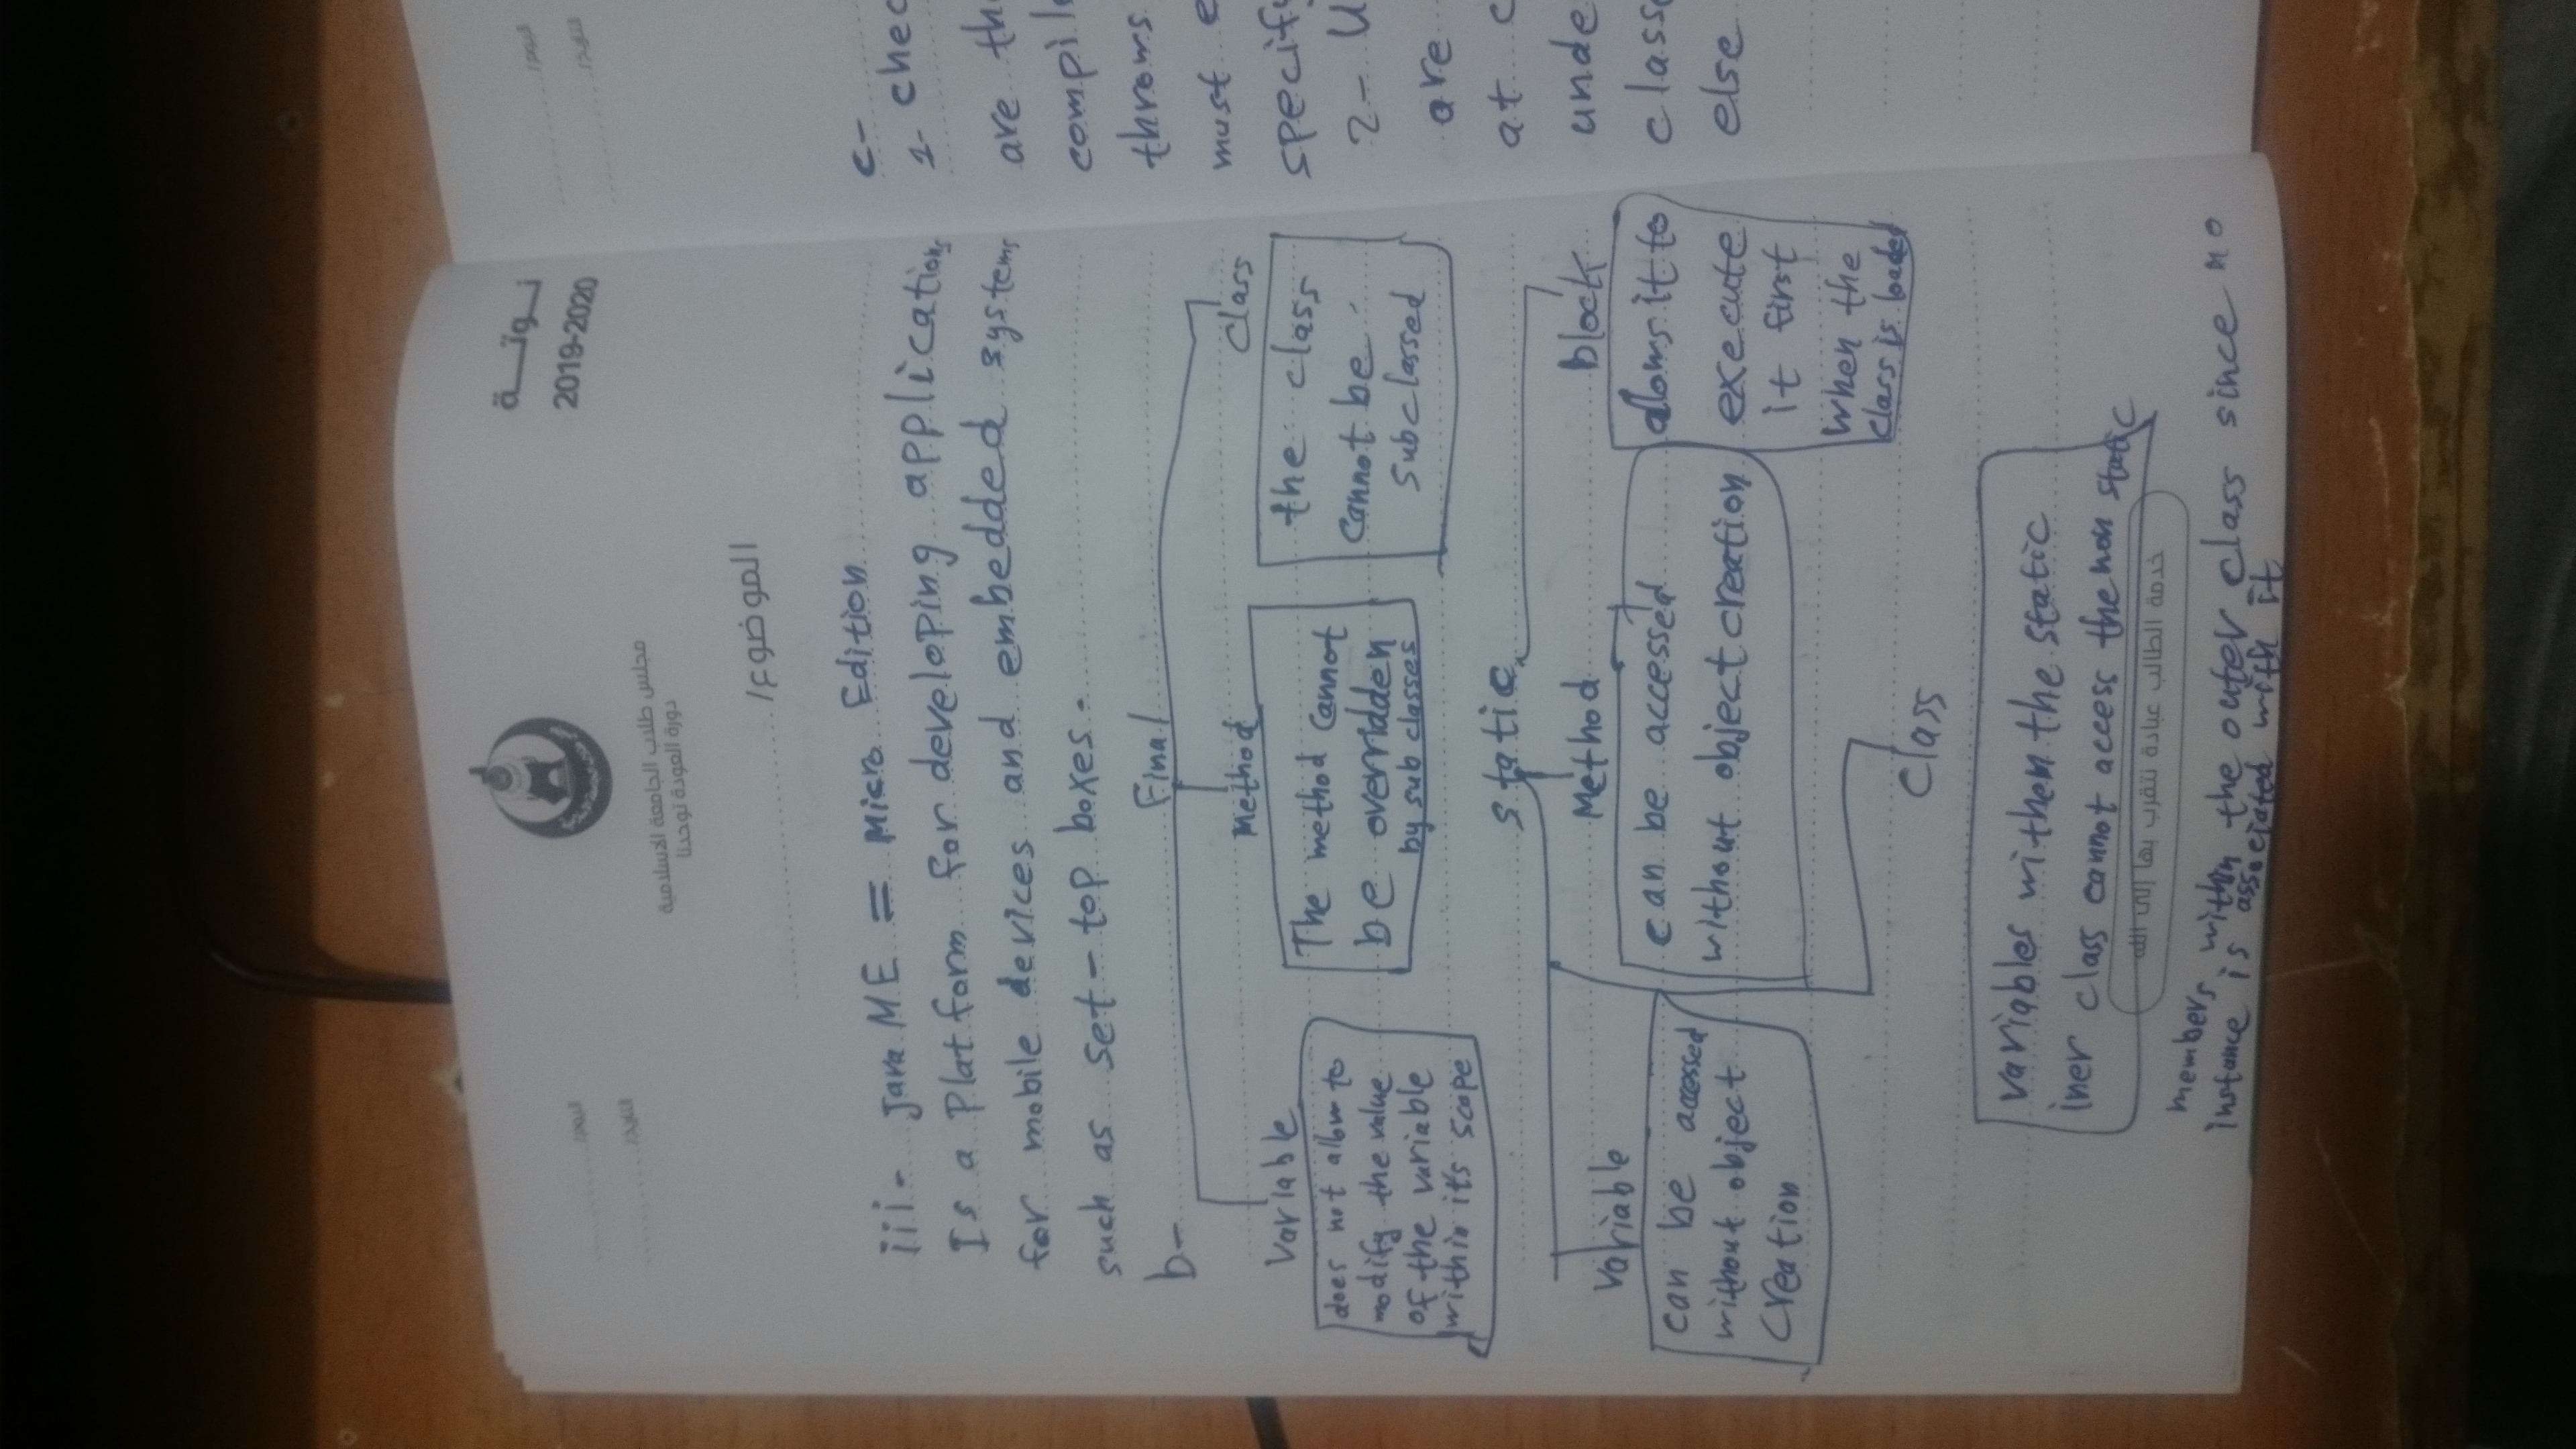 نوتــة
2019-2020
مجلس طلاب الجامعة الاسلامية
دورة العودة توحدنا
اليوم/
التاريخ/
الموضوع/
iii- Java ME = Micro Edition
Is a Platform for developing applications
for mobile devices and embedded systems
such as set-top boxes.
b-
Final
Variable
Method
Class
does not allow to
modify the value
of the variable
within it's scope
The method cannot
be overridden
by sub classes
the class
cannot be
subclassed
static
Variable
Method
block
can be accessed
without object
creation
can be accessed
without object creation
allows it to
execute
it first
when the
class is loaded
Class
variables within the static
iner class cannot access the non static
خدمة الطالب عبادة نتقرب بها إلى الله
members within the outer class since no
instance is associated with it
اليوم/
التاريخ/
c-
1- chec
are the
compile
throws
must e
specify
2- U
are
at c
unde
class
else